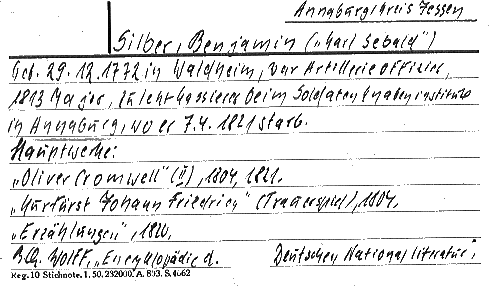 Annaburg, Kreis Jessen
Silber, Benjamin („Karl Sebald")
Geb. 29.12.1772 in Waldheim, war Artillerieoffizier,
1813 Major, zuletzt Kassierer beim Soldatenknabeninstitut
in Annaburg, wo er 7.4.1821 starb.
Hauptwerke:
„Oliver Cromwell" (II), 1804, 1821.
„Kurfürst Johann Friedrich" (Trauerspiel), 1804.
„Erzählungen", 1820.
BQ. Wolff, „Encyklopädie d. Deutschen Nationalliteratur",
Reg. 10 Stichnote. 1. 50. 232000. A. 893. S. 4662